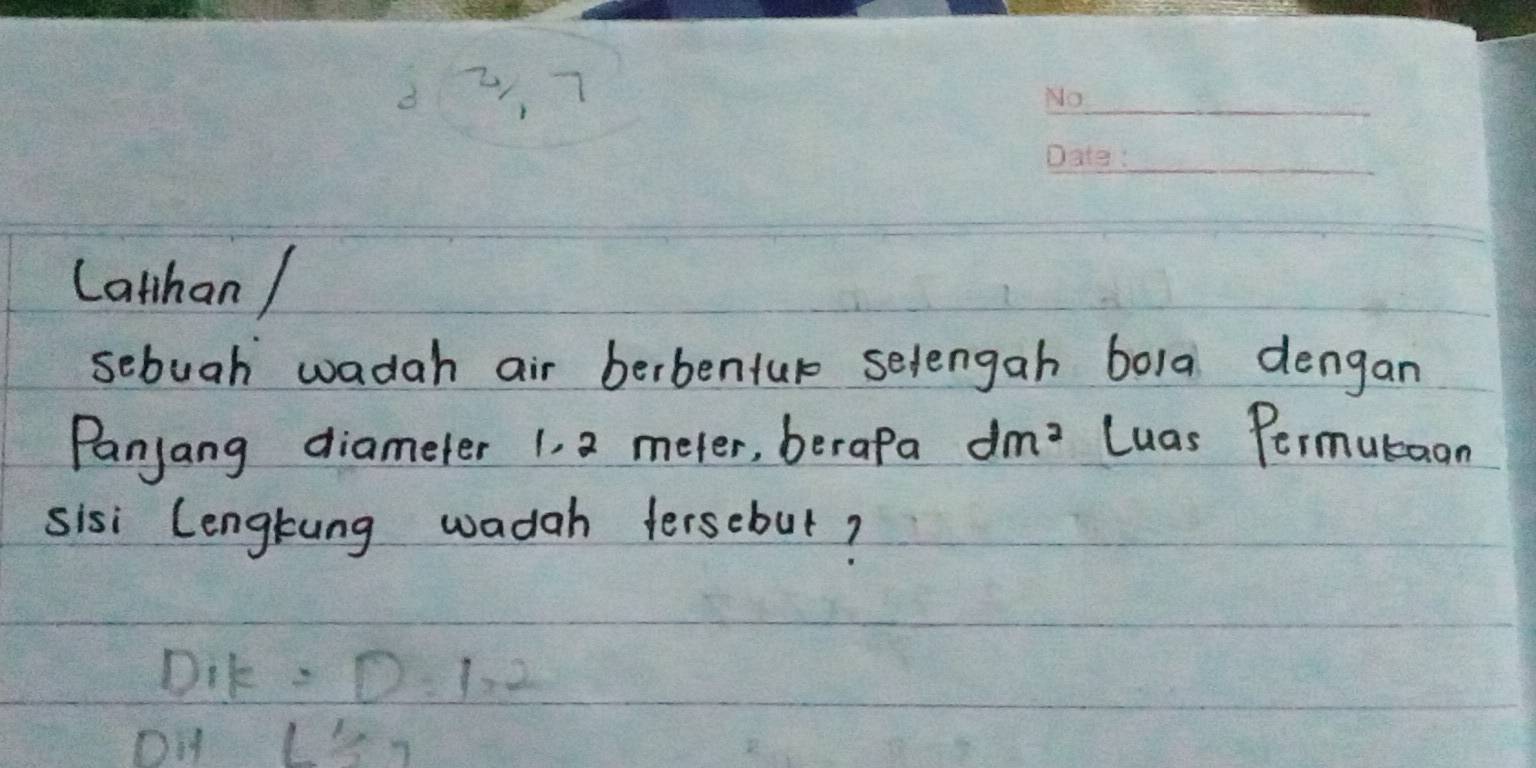 No
Date :
Latihan /
sebuah wadah air berbentuk setengah bola dengan
Panjang diameter 1,2 meter, berapa dm² Luas Permukaan
sisi Lengkung wadah tersebut ?
Dik = D = 1,2
Dit L